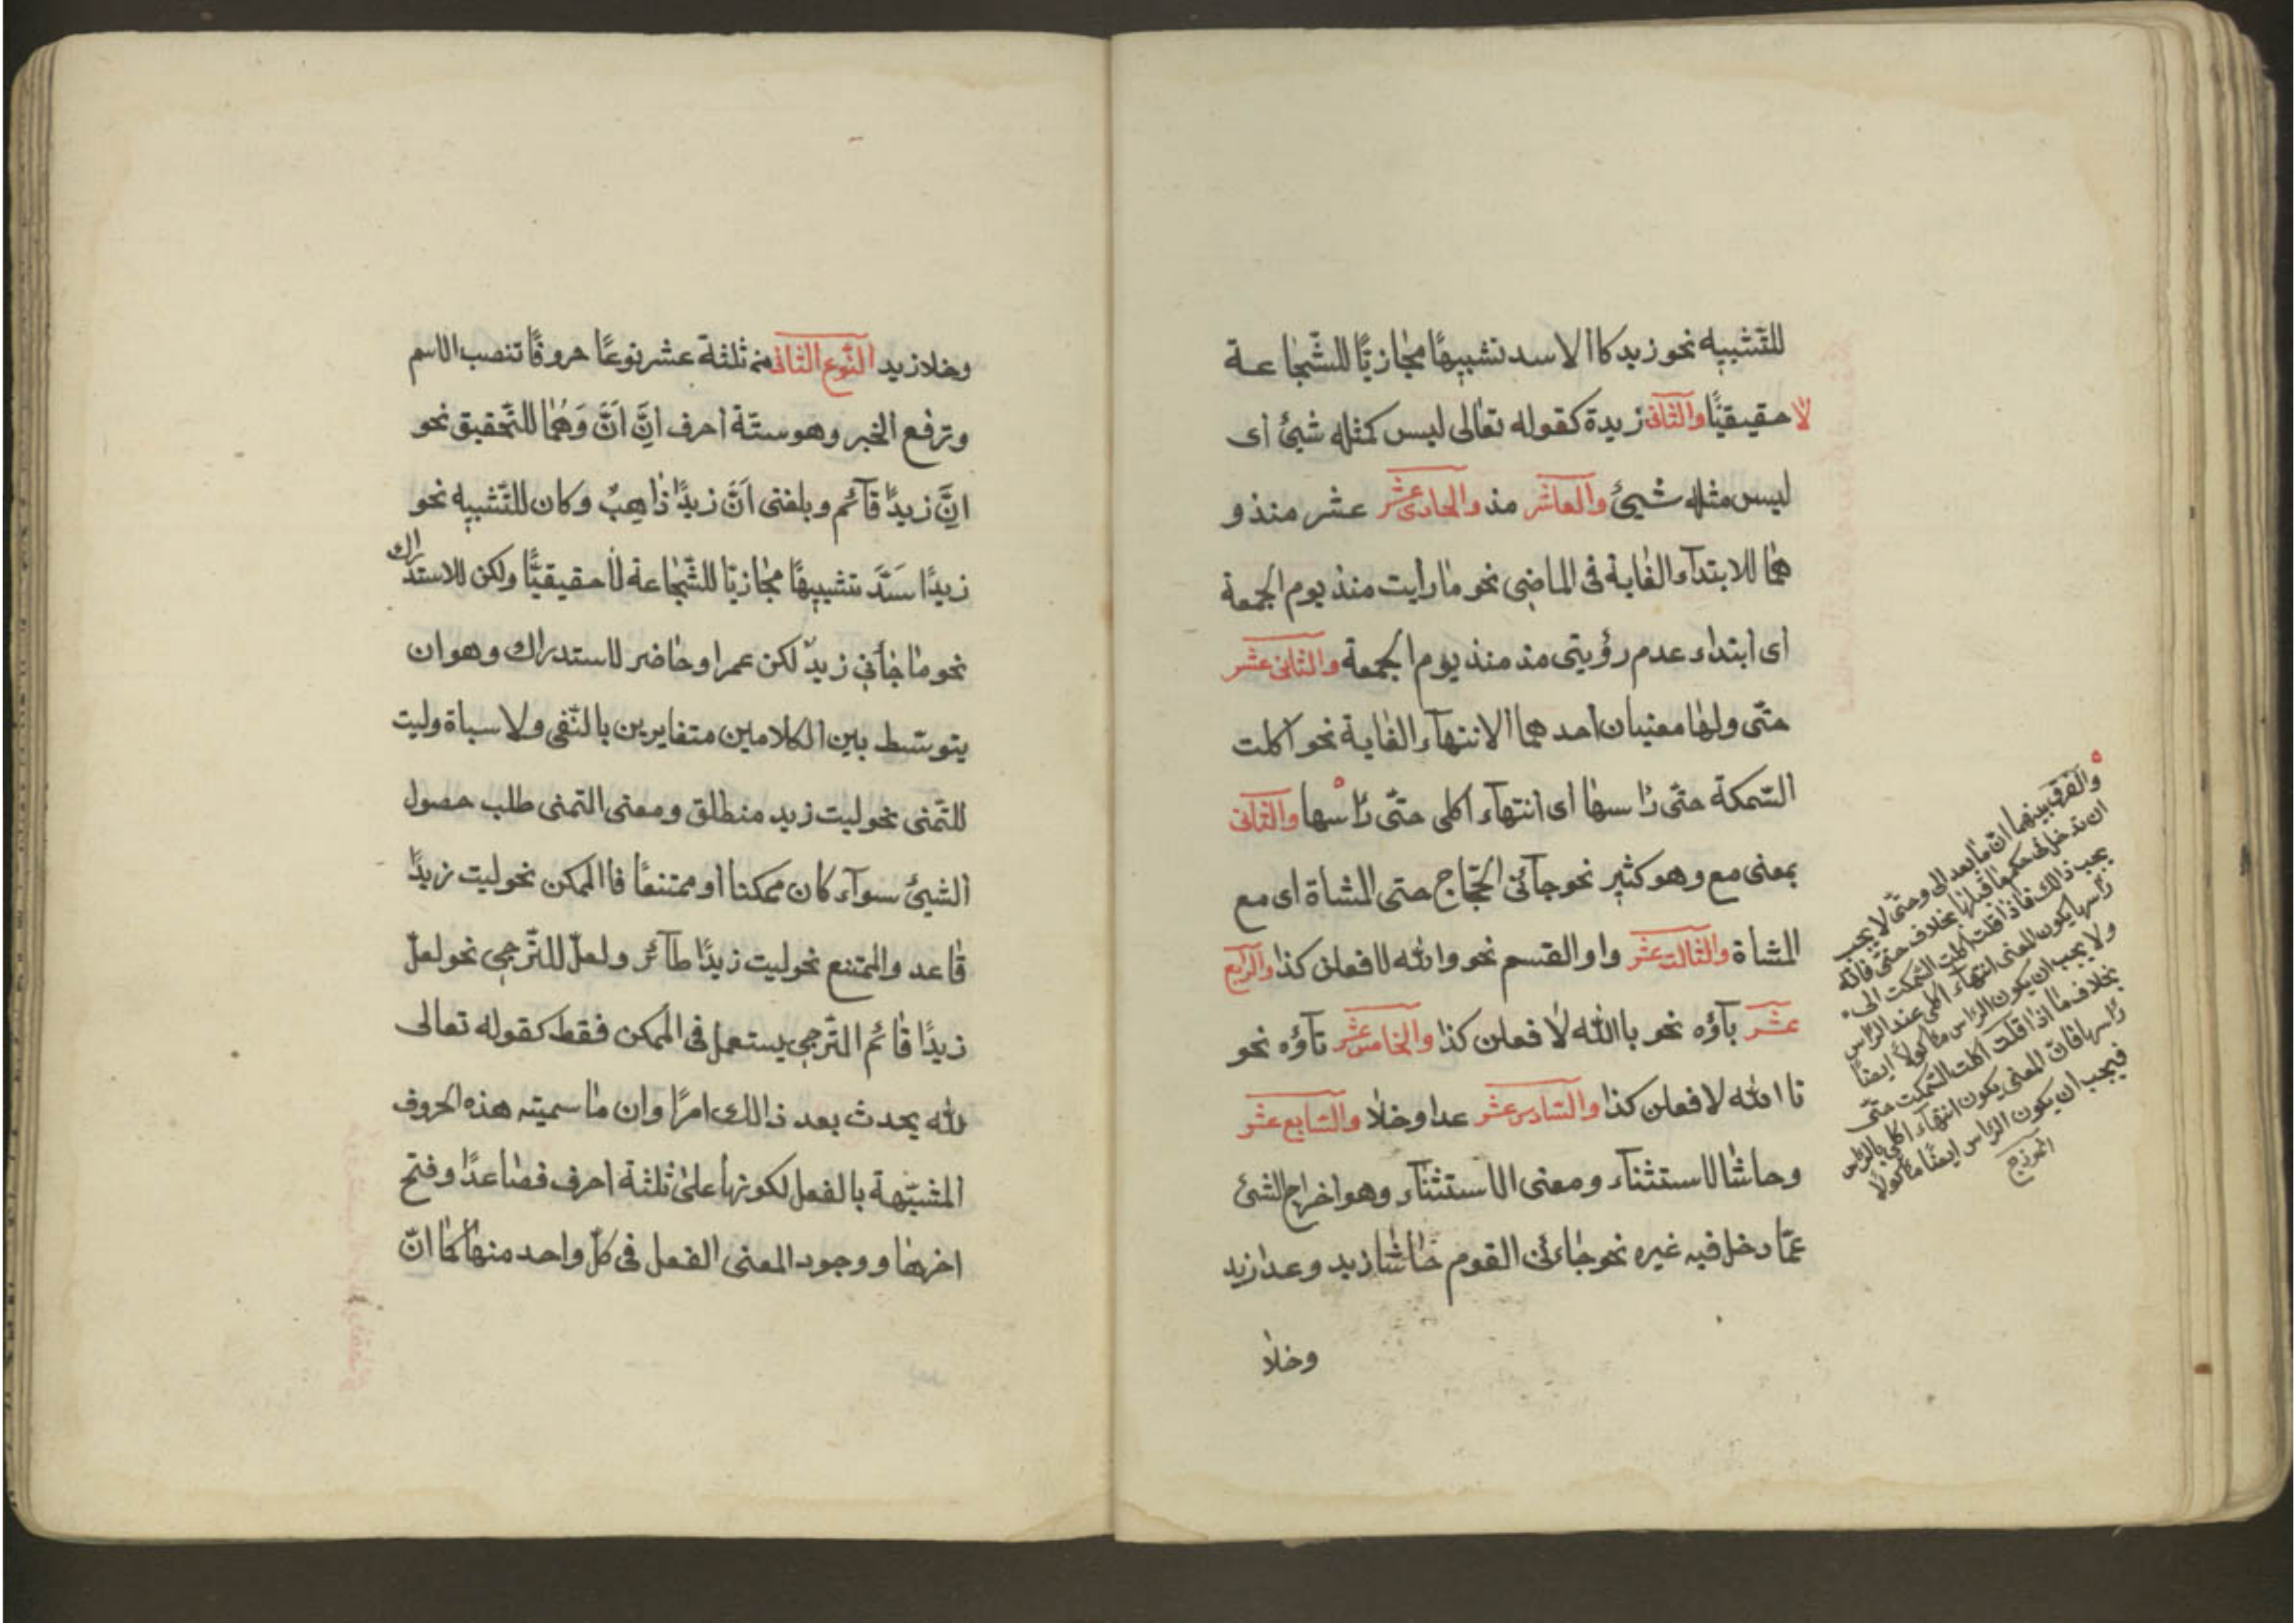 للتّشبيه نحو زيد كاالاسد تشبيهًا مجازيًّا للشّجاعة
لا حقيقيًّا والثانى زيدة كقوله تعالى ليس كمثله شيئ أى
ليس مثله شيئ والعاشر مذ والحادى عشر عشر منذ و
هما للابتدآء الغاية فى الماضى نحو مارأيت منذ يوم الجمعة
أى ابتداء عدم رؤيتى مذ منذ يوم الجمعة والثانى عشر
حتّى ولها معنيان احدهما الانتهآء الغاية نحو اكلت
السّمكة حتّى رأسها أى انتهآء اكلى حتّى رأسها والثّانى
بمعنى مع وهو كثير نحو جآئنى الحجّاج حتى المشاة اى مع
المشاة والثّالث عشر واو القسم نحو والله لافعلن كذا والرّابع
عشر بآؤه نحو باالله لا فعلن كذا والخامس عشر تآؤه نحو
تا الله لافعلن كذا والسّادس عشر عدا وخلا والسّابع عشر
وحاشا للاستثنآء ومعنى الاستثنآء وهو اخراج الشئ
عمّا دخل فيه غيره نحو جاءنى القوم حاشا زيد وعدا زيد
وخلا
والفرق بينهما انّ ما بعد الى وحتّى لا يجب
ان تدخل فى حكم ما قبلها بخلاف حتّى فانّه
يجب ذالك فاذا قلت اكلت السّمكت الى
رأسها يكون المعنى انتهآء اكلى عند الرّاس
ولا يجب ان يكون الرّاس مأكولاً ايضًا
بخلاف ما اذا قلت اكلت السّمكت حتّى
رأسها فانّ المعنى يكون انتهآء اكلى بالرّاس
فيجب ان يكون الرّاس ايضًا مأكولا
وخلا زيد النّوع الثانى من ثلثة عشر نوعًا حروفًا تنصب الاسم
وترفع الخبر وهو ستّة أحرف اِنَّ اَنَّ وَهُمَا للتّحقيق نحو
اِنَّ زيدًا قآئم وبلغنى اَنَّ زيدًا ذاهبٌ وكان للتّشبيه نحو
زيدًا سَدَّ تشبيهًا مجازيًا للشّجاعة لا حقيقيًّا ولكن للاستدراك
نحو ما جآئنى زيدٌ لكن عمرا وحاضر للاستدراك وهو ان
يتوسّط بين الكلامين متغايرين بالنّفى ولاسباة وليت
للتّمنى نحو ليت زيد منطلق ومعنى التمنى طلب حصول
الشيئ سوآء كان ممكنا أو ممتنعًا فاالممكن نحو ليت زيدًا
قاعد والممتنع نحو ليت زيدًا طآئر ولعلّ للتّرجى نحو لعلّ
زيدًا قائم التّرجى يستعمل فى الممكن فقط كقوله تعالى
لله يحدث بعد ذالك امرًا وان ما سميته هذه الحروف
المشبّهة بالفعل لكونها على ثلثة احرف فصاعدًا وفتح
اخرها ووجود المعنى الفعل فى كلّ واحد منها كما انّ